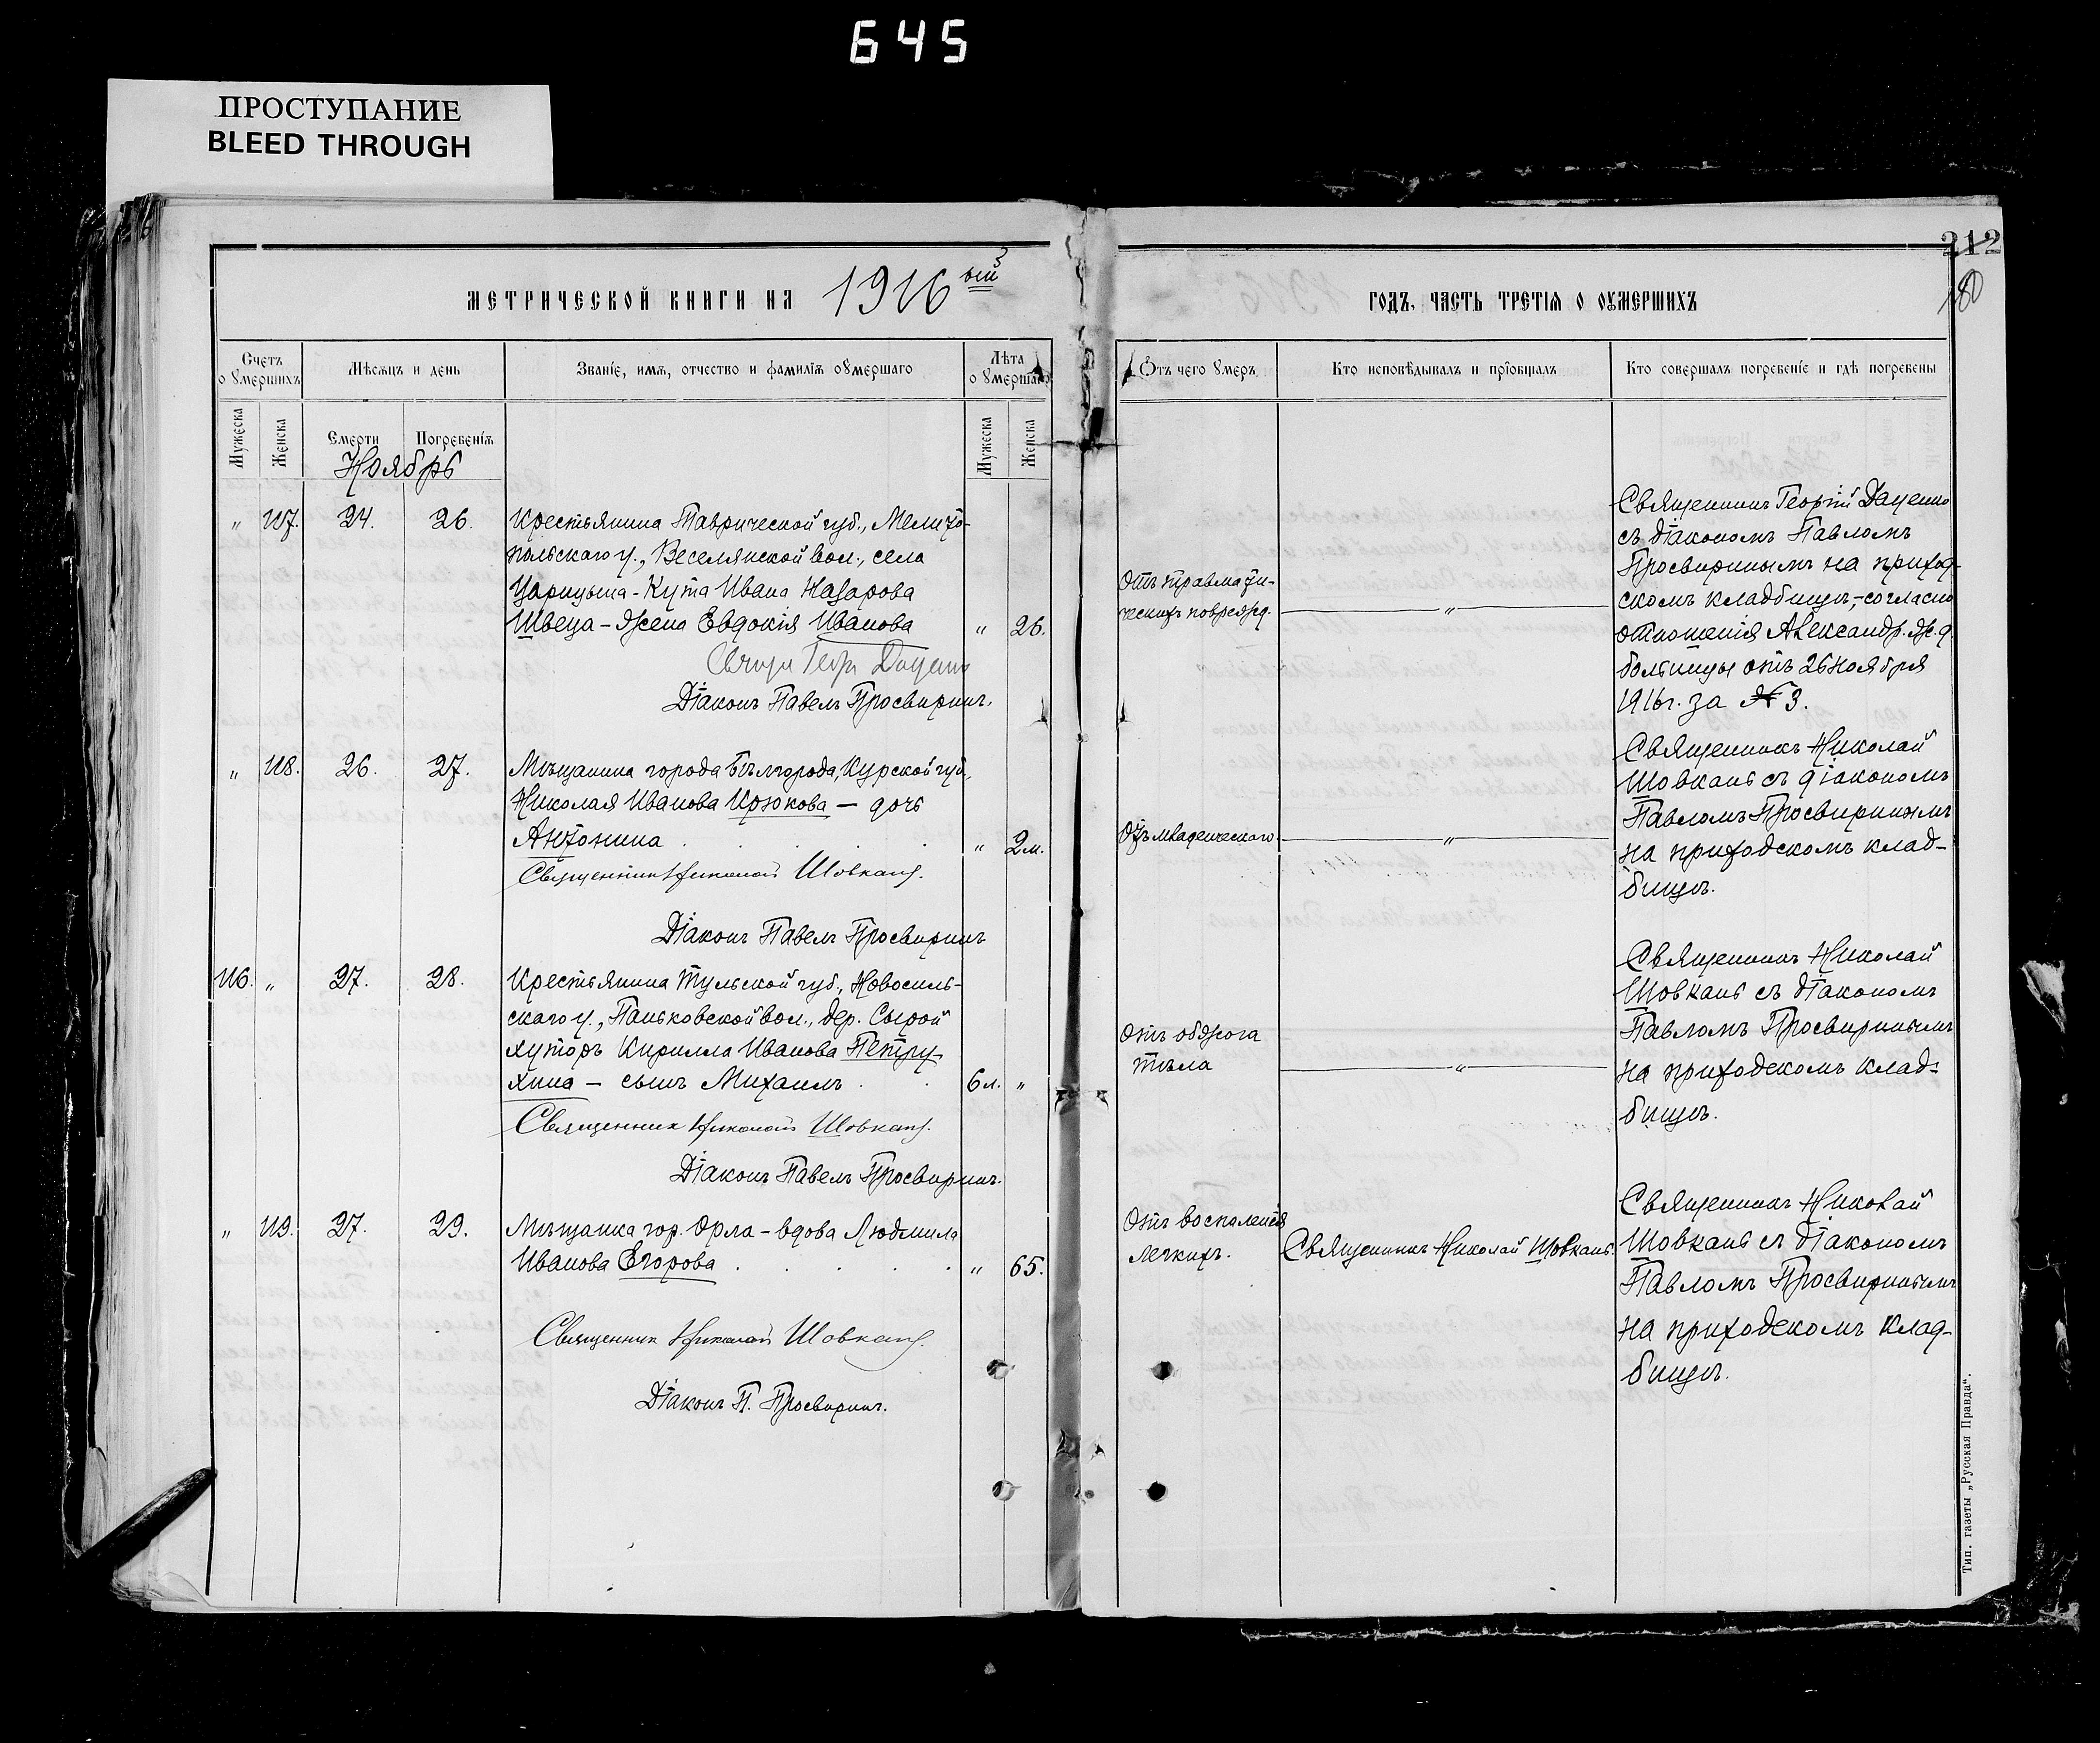 645
ПРОСТУПАНИЕ
BLEED THROUGH
212
180
МЕТРИЧЕСКОЙ КНИГИ НА 1916 ый
ГОДЪ, ЧАСТЬ ТРЕТІЯ О ОУМЕРШИХЪ
Счетъ о умершихъ
Мѣсяцъ и день
Званіе, имя, отчество и фамилія оумершаго
Лѣта о умершаго
Отъ чего умеръ
Кто исповѣдывалъ и пріобщалъ
Кто совершалъ погребеніе и гдѣ погребены
Мужеска
Женска
Смерти
Погребенія
Мужеска
Женска
Ноябрь
„ 117. 24. 26.
Крестьянина Таврической губ., Мелито-
польскаго у., Веселянской вол., села
Царицына-Кута Ивана Назарова
Швеца - жена Евдокія Иванова „ 26.
Георг Даценко
Діаконъ Павелъ Просвиринъ.
Отъ травмати-
ческихъ поврежд. „
Священникъ Георгій Даценко
съ діакономъ Павломъ
Просвиринымъ на приход-
скомъ кладбищѣ, - согласно
отношенія Александр. ж. д.
больницы отъ 26 ноября
1916 г. за № 3.
„ 118. 26. 27.
Мѣщанина города Бѣлгорода, Курской губ.,
Николая Иванова Крюкова - дочь
Антонина . . . . „ 2 м.
Священникъ Николай Шовкань.
Діаконъ Павелъ Просвиринъ
Отъ младенческаго. „
Священникъ Николай
Шовкань съ діакономъ
Павломъ Просвиринымъ
на приходскомъ клад-
бищѣ.
116. „ 27. 28.
Крестьянина Тульской губ., Новосиль-
скаго у., Паньковской вол., дер. Сырой
хуторъ Кирилла Иванова Петру-
хина - сынъ Михаилъ . . 6 л. „
Священникъ Николай Шовкань.
Діаконъ Павелъ Просвиринъ.
Отъ обжога
тѣла „
Священникъ Николай
Шовкань съ діакономъ
Павломъ Просвиринымъ
на приходскомъ клад-
бищѣ.
„ 119. 27. 29.
Мѣщанка гор. Орла - вдова Людмила
Иванова Егорова . . . . . „ 65.
Священникъ Николай Шовкань.
Діаконъ П. Просвиринъ.
Отъ воспаленія
легкихъ.
Священникъ Николай Шовкань.
Священникъ Николай
Шовкань съ діакономъ
Павломъ Просвиринымъ
на приходскомъ клад-
бищѣ.
Тип. газеты „Русская Правда“.